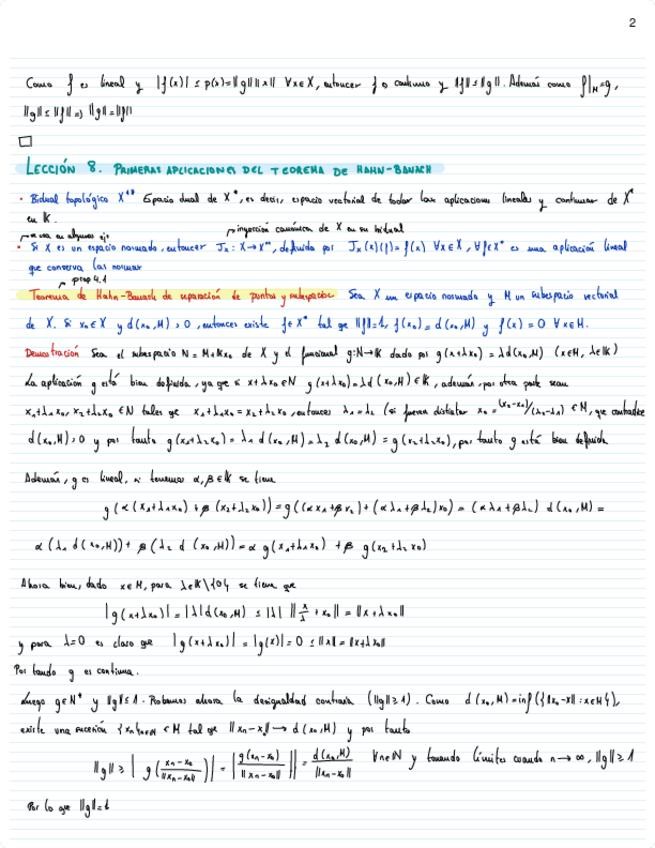 2
Como f es lineal y |f(x)| ≤ p(x)=||g|| ||x|| ∀x∈X, entonces f es continuo y ||f||≤||g||. Además como f|_M=g,
||g|| ≤ ||f|| => ||g||=||f||
□
LECCIÓN 8. PRIMERAS APLICACIONES DEL TEOREMA DE HAHN-BANACH
· Bidual topológico X** Espacio dual de X*, es decir, espacio vectorial de todas las aplicaciones lineales y continuas de X*
en K.
se usa en algunos ej. inyección canónica de X en su bidual
· Si X es un espacio normado, entonces J_X: X→X**, definida por J_X(x)(f)=f(x) ∀x∈X, ∀f∈X* es una aplicación lineal
que conserva las normas
prop 4.1
Teorema de Hahn-Banach de separación de puntos y subespacios Sea X un espacio normado y M un subespacio vectorial
de X. Si x₀∈X y d(x₀,M)>0, entonces existe f∈X* tal que ||f||=1, f(x₀)=d(x₀,M) y f(x)=0 ∀x∈M.
Demostración Sea el subespacio N=M+Kx₀ de X y el funcional g:N→K dado por g(x+λx₀)=λd(x₀,M) (x∈M, λ∈K)
La aplicación g está bien definida, ya que si x+λx₀∈N g(x+λx₀)=λd(x₀,M)∈K, además, por otra parte sean
x₁+λ₁x₀, x₂+λ₂x₀ ∈N tales que x₁+λ₁x₀=x₂+λ₂x₀, entonces λ₁=λ₂ (si fueran distintos x₀=(x₂-x₁)/(λ₁-λ₂) ∈M, que contradice
d(x₀,M)>0 y por tanto g(x₁+λ₁x₀)=λ₁d(x₀,M)=λ₂d(x₀,M)=g(x₂+λ₂x₀), por tanto g está bien definida
Además, g es lineal, si tenemos α,β∈K se tiene
g(α(x₁+λ₁x₀)+β(x₂+λ₂x₀))=g((αx₁+βx₂)+(αλ₁+βλ₂)x₀)=(αλ₁+βλ₂) d(x₀,M)=
α(λ₁d(x₀,M))+β(λ₂d(x₀,M))=αg(x₁+λ₁x₀)+βg(x₂+λ₂x₀)
Ahora bien, dado x∈M, para λ∈K\{0} se tiene que
|g(x+λx₀)|=|λ|d(x₀,M) ≤ |λ| ||x/λ+x₀||=||x+λx₀||
y para λ=0 es claro que |g(x+λx₀)|=|g(x)|=0≤||x||=||x+λx₀||
Por tando g es continua.
Luego g∈N* y ||g||≤1. Probamos ahora la desigualdad contraria (||g||≥1). Como d(x₀,M)=inf({||x₀-x||:x∈M}),
existe una sucesión {xₙ}ₙ∈N ⊂M tal que ||xₙ-x₀||→d(x₀,M) y por tanto
||g||≥|g((xₙ-x₀)/||xₙ-x₀||)|=|g(xₙ-x₀)/||xₙ-x₀|||=d(x₀,M)/||xₙ-x₀|| ∀n∈N y tomando límites cuando n→∞, ||g||≥1
Por lo que ||g||=1